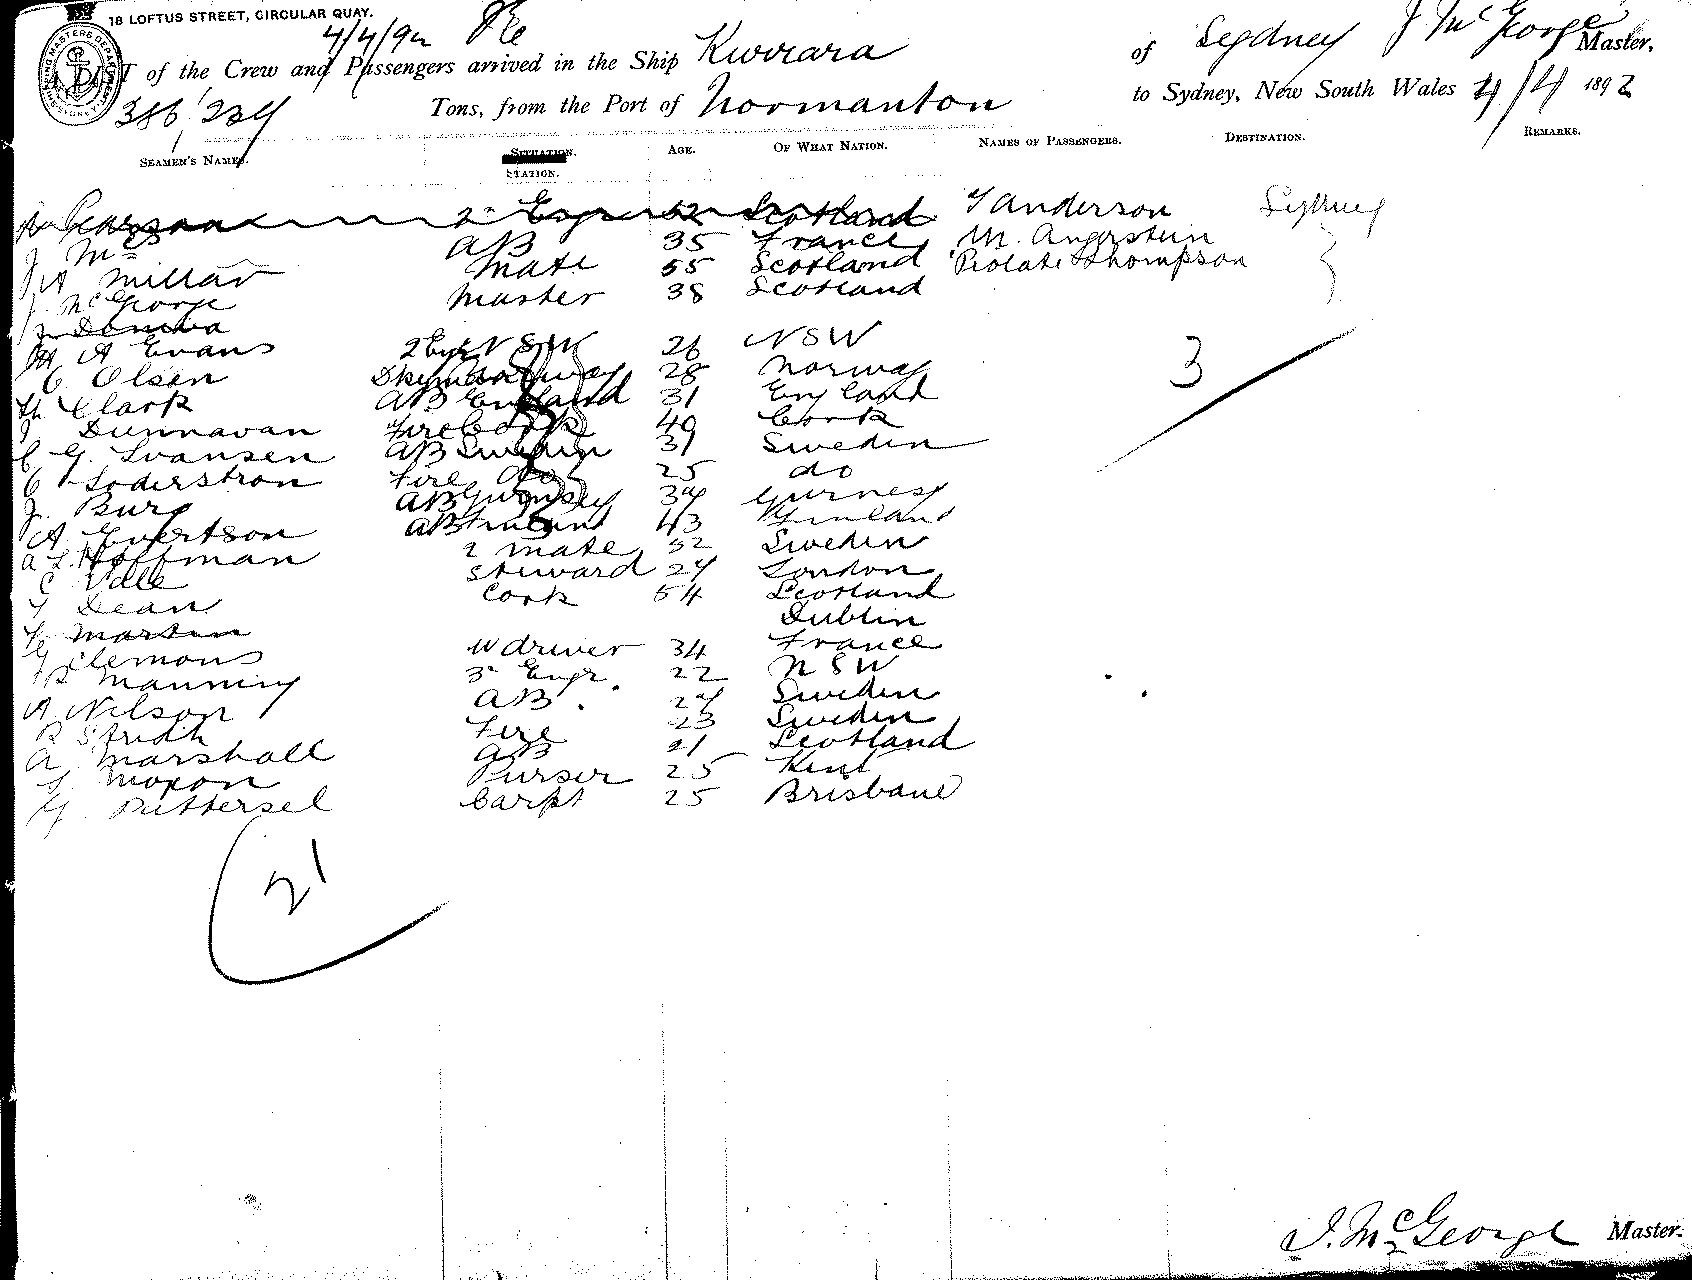 18 LOFTUS STREET, CIRCULAR QUAY.
4/4/92
A LIST of the Crew and Passengers arrived in the Ship Kworara of Sydney J McGeorge Master,
386/234 Tons, from the Port of Normanton to Sydney, New South Wales 4/4 1892
SEAMEN'S NAMES. STATION. AGE. OF WHAT NATION. NAMES OF PASSENGERS. DESTINATION. REMARKS.
Pearson 2nd Engr 52 Scotland Anderson Sydney
AB 35 France M. Angerstein
Millar Mate 55 Scotland Thompson
J. McGeorge Master 38 Scotland
A Evans NSW 26 NSW
C. Olsen Norway 28 Norway
Clark AB England 31 England
Dunnavan Fire Cork 49 Cork
G. Svansen AB Sweden 31 Sweden
Soderstron Fire do 25 do
J. Burg AB Gurnsey 34 Gurnesy
A. Evertson AB Finland 43 Finland
A L. Hoffman 2 Mate 52 Sweden
C Vale Steward 24 London
Dean Cook 54 Scotland
Martin Dublin
Clemons W driver 34 France
Manning 3rd Engr. 22 NSW
A Nilson AB. 24 Sweden
R Stridh Fire 23 Sweden
A Marshall AB 21 Scotland
Moxon Purser 25 Kent
Puttersel Carpt 25 Brisbane
3
21
J. McGeorge Master.